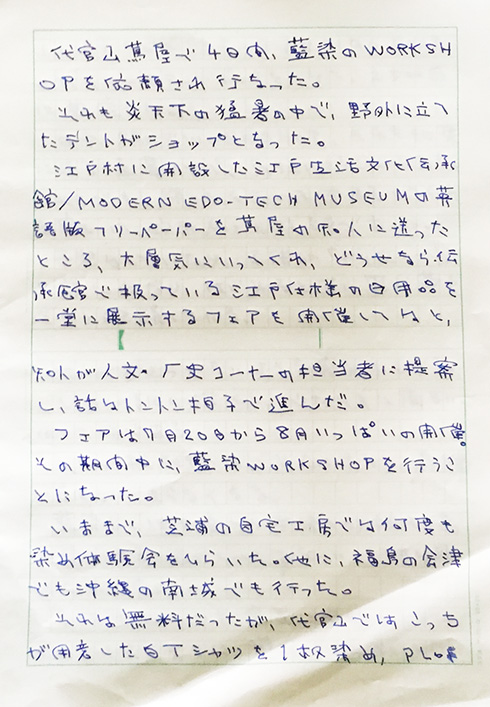 代官山蔦屋で4日間、藍染のWORKSH
OPを依頼され行なった。
それも炎天下の猛暑の中で、野外に立て
たテントがショップとなった。
江戸村に開設した江戸生活文化伝承
館/MODERN EDO-TECH MUSEUMの英
語版フリーペーパーを蔦屋の知人に送った
ところ、大層気にいってくれ、どうせなら伝
承館で扱っている江戸仕様の日用品を
一堂に展示するフェアを開催してはと、
知人が人文・歴史コーナーの担当者に提案
し、話はトントン拍子で進んだ。
フェアは7月20日から8月いっぱいの開催。
その期間中に、藍染WORKSHOPを行うこ
とになった。
いままで、芝浦の自宅工房では何度も
染め体験会をひらいた。他に、福島の会津
でも沖縄の南城でも行った。
それは無料だったが、代官山ではこっち
が用意した白Tシャツを1枚染め,